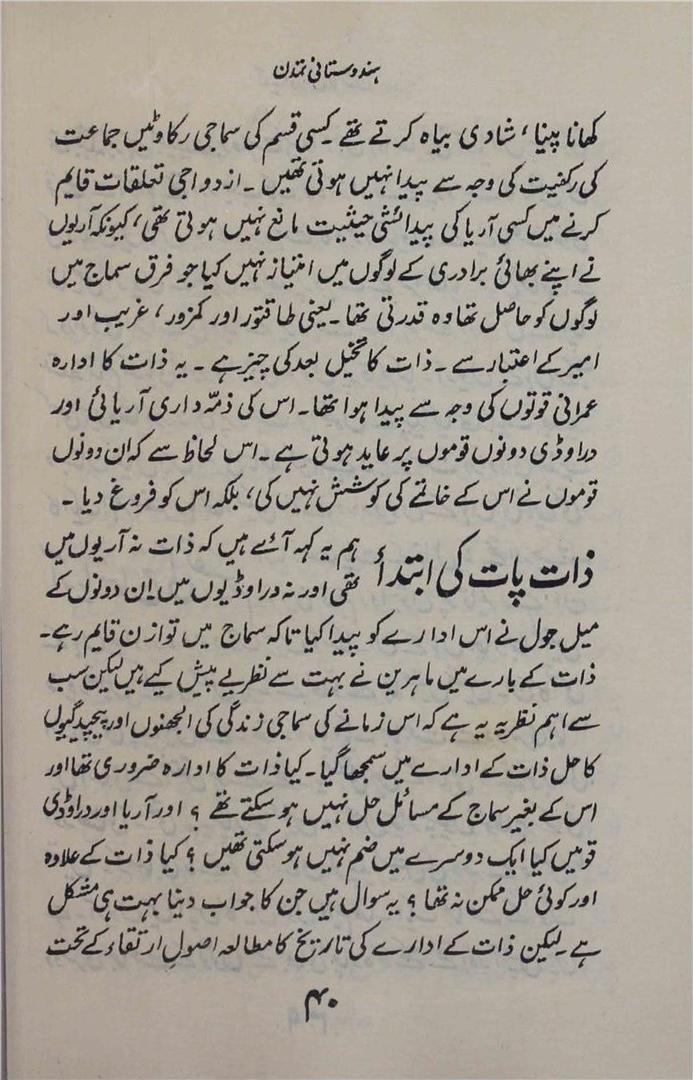 ہندوستانی تمدن
کھانا پینا، شادی بیاہ کرتے تھے۔ کسی قسم کی سماجی رکاوٹیں جماعت
کی رکنیت کی وجہ سے پیدا نہیں ہوتی تھیں۔ ازدواجی تعلقات قایم
کرنے میں کسی آریا کی پیدائشی حیثیت مانع نہیں ہوتی تھی، کیونکہ آریوں
نے اپنے بھائی برادری کے لوگوں میں امتیاز نہیں کیا جو فرق سماج میں
لوگوں کو حاصل تھا وہ قدرتی تھا۔ یعنی طاقتور اور کمزور، غریب اور
امیر کے اعتبار سے۔ ذات کا تخیل بعد کی چیز ہے۔ یہ ذات کا ادارہ
عمرانی قوتوں کی وجہ سے پیدا ہوا تھا۔ اس کی ذمّہ داری آریائی اور
دراوڈی دونوں قوموں پر عاید ہوتی ہے۔ اس لحاظ سے کہ ان دونوں
قوموں نے اس کے خاتمے کی کوشش نہیں کی، بلکہ اس کو فروغ دیا۔
ذات پات کی ابتدأ
ہم یہ کہہ آئے ہیں کہ ذات نہ آریوں میں
تھی اور نہ دراوڈیوں میں۔ ان دونوں کے
میل جول نے اس ادارے کو پیدا کیا تاکہ سماج میں توازن قایم رہے۔
ذات کے بارے میں ماہرین نے بہت سے نظریے پیش کیے ہیں لیکن سب
سے اہم نظریہ یہ ہے کہ اس زمانے کی سماجی زندگی کی الجھنوں اور پیچیدگیوں
کا حل ذات کے ادارے میں سمجھا گیا۔ کیا ذات کا ادارہ ضروری تھا اور
اس کے بغیر سماج کے مسائل حل نہیں ہو سکتے تھے؟ اور آریا اور دراوڈی
قومیں کیا ایک دوسرے میں ضم نہیں ہو سکتی تھیں؟ کیا ذات کے علاوہ
اور کوئی حل ممکن نہ تھا؟ یہ سوال ہیں جن کا جواب دینا بہت ہی مشکل
ہے۔ لیکن ذات کے ادارے کی تاریخ کا مطالعہ اصولِ ارتقاء کے تحت
۴۰